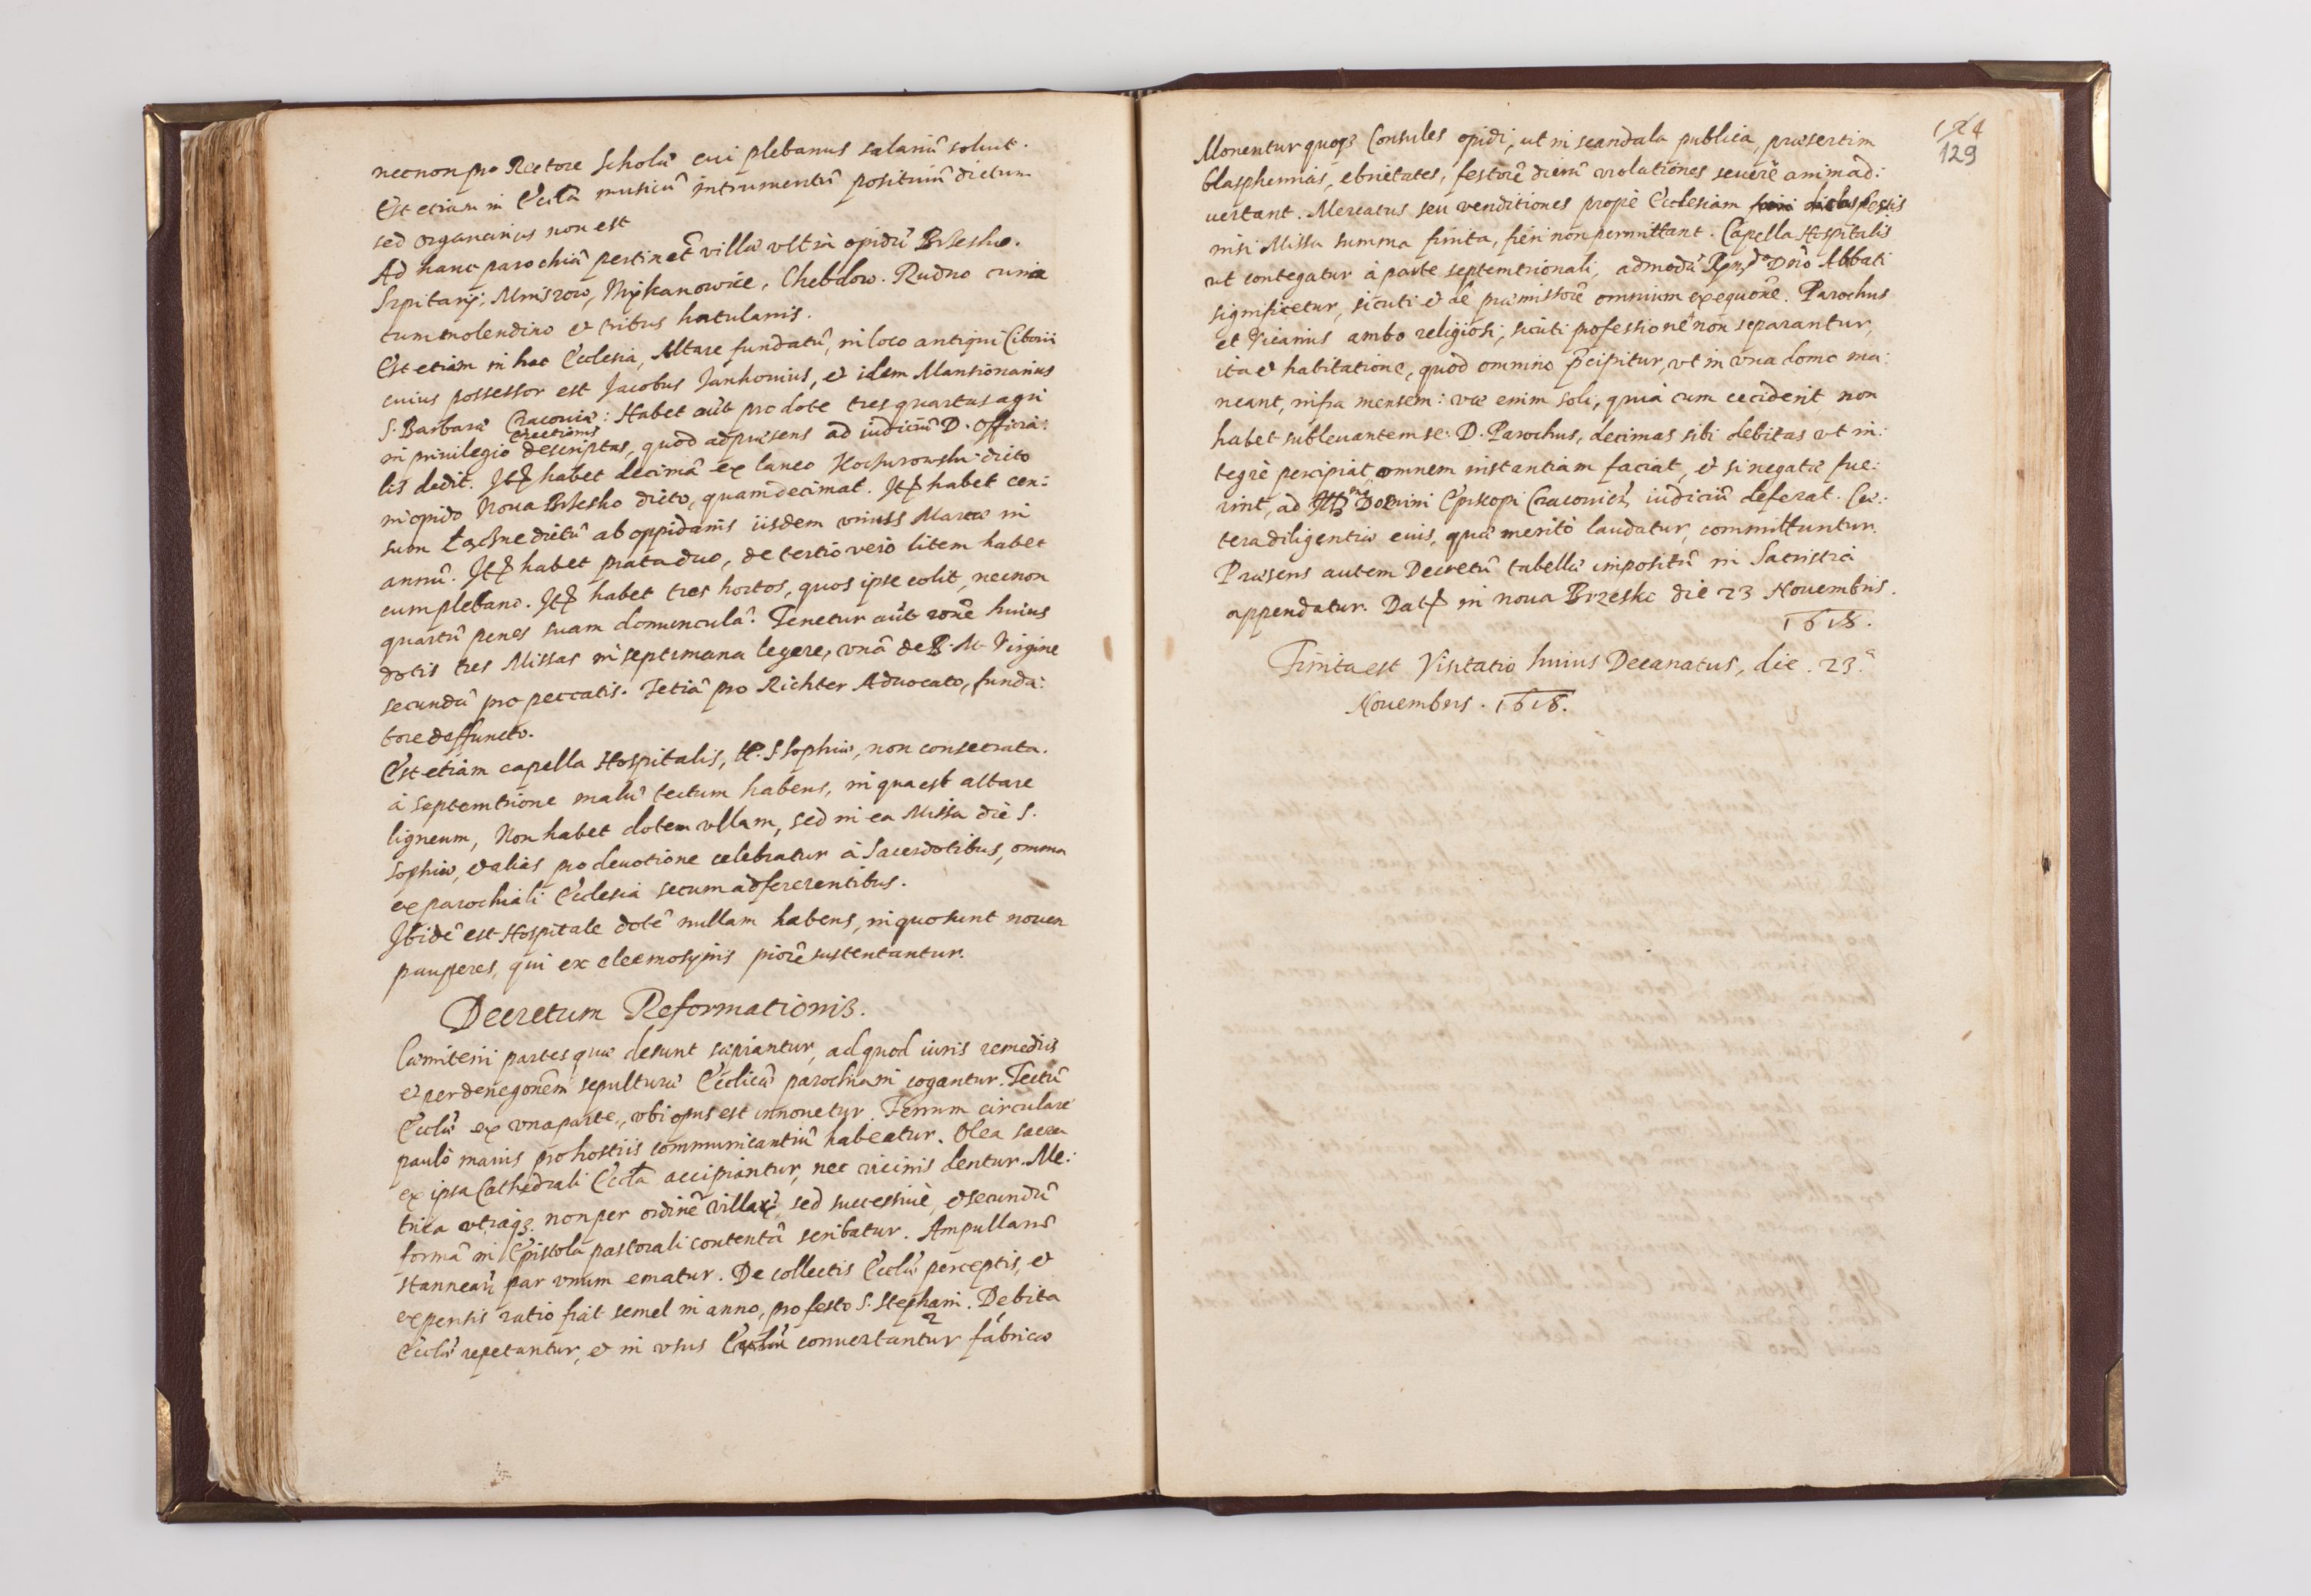 necnon pro Rectore Scholæ cui plebanus salariū soluit.
Est etiam in Eccła musicū intrumentū positiuū dictum
sed organarius non est
Ad hanc parochiā pertinet villæ vltra opidū Brzesko.
Szpitary, Mniszow, Mykanowice, Chebdow. Rudno cum
cum molendino et tribus hortulanis.
Est etiam in hac Ecclesia, Altare fundatū, in loco antiqui Ciborii
cuius possessor est Jacobus Jankouius, et idem Mansionarius
S. Barbaræ Cracouiæ: Habet aūt pro dote tres quartas agri
in priuilegio erectionis descriptas, quod ad præsens ad iudiciū D. Officia:
lis dedit. Itē habet decimā ex laneo dicto
in opido Noua Brzesko dicto, quam decimat. Itē habet cen:
sum dictū ab oppidanis iisdem vniuss Marcæ in
annū. Itē habet prata duo, de tertio verò litem habet
cum plebano. Itē habet tres hortos, quos ipse colit, necnon
quartū penes suam domunculā. Tenetur aūt rōne huius
dotis tres Missas in septimana legere, vnā de B. M. Virgine
secundā pro peccatis. Tertiā pro Richter Aduocato, funda:
tore deffuncto.
Est etiam capella Hospitalis, tt. S Sophiæ, non consecrata.
à septemtrione malū tectum habens, in qua est altare
ligneum, Non habet dotem vllam, sed in ea Missa die S.
Sophiæ, et alias pro deuotione celebratur à Sacerdotibus, omnia
ex parochiali Ecclesia secum adferentibus.
Ibidē est Hospitale dotē nullam habens, in quo sunt nouem
pauperes, qui ex eleemosynis piorū sustentantur.
Decretum Reformationis.
Cœmiterii partes quæ desunt sæpiantur, ad quod iuris remediis
et per denegōnem sepulturæ Ecclicæ parochiani cogantur. Tectū
Ecclæ ex vna parte, vbi opus est innouetur. Ferrum circulare
paulò maius pro hostiis communicantiū habeatur. Olea sacra
ex ipsa Cathedrali Eccła accipiantur, nec vicinis dentur. Me:
trica vtraq3 non per ordinē villarū, sed successiuè, et secundū
formā in Epistola pastorali contentā scribatur. Ampullarū
stannearū par vnum ematur. De collectis Ecclæ perceptis, et
expensis ratio fiat semel in anno, pro festo S. Stephani. Debita
Ecclæ repetantur, et in vsus Ecclæ conuertantur fabricæ
124
129
Monentur quoq3 Consules opidi, ut in scandala publica, præsertim
blasphemias, ebrietates, festorū dierū violationes seuerè animad:
uertant. Mercatus seu venditiones propè Ecclesiam diebus Festis
nisi Missa summa finita, fieri non permittant. Capella Hospitalis
ut contegatur à parte septemtrionali, admodū Rṃdo Dn̄o Abbati
significetur, sicuti et de præmissorū omnium exequōne. Parochus
et Vicarius ambo religiosi, sicuti professione non separantur,
ita et habitatione, quod omnino p̄cipitur, vt in vna domo ma:
neant, infra mensem: væ enim soli, quia cum ceciderit non
habet subleuantem se. D. Parochus, decimas sibi debitas vt in:
tegrè percipiat, omnem instantiam faciat, et si negatæ fue:
rint, ad Domini Episcopi Cracouien̄ iudiciū deferat. Cæ:
tera diligentiæ eius, quæ meritò laudatur, committuntur.
Præsens autem Decretū tabellæ impositū in Sacristia
appendatur. Datū in noua Brzesko die 23 Nouembris.
1618.
Finita est Visitatio huius Decanatus, die. 23.a
Nouembris. 1618.